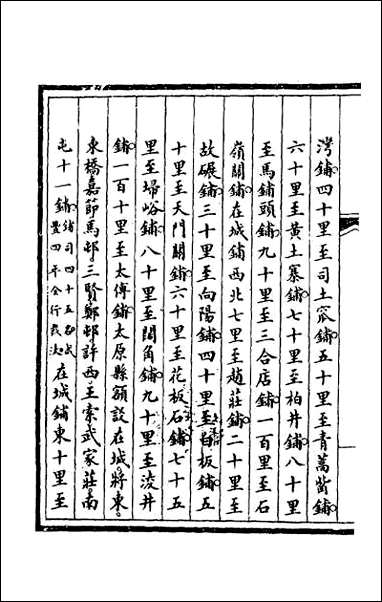 灣鋪四十里至司土窊鋪五十里至青蒿嵛鋪
六十里至黄土寨鋪七十里至柏井鋪八十里
至馬鋪頭鋪九十里至三合店鋪一百里至石
嶺關鋪在城鋪西北七里至趙莊鋪二十里至
故碾鋪三十里至向陽鋪四十里至白板鋪五
十里至天門關鋪六十里至花板石鋪七十五
里至埽峪鋪八十里至閤角鋪九十里至凌井
鋪一百十里至太傅鋪太原縣額設在城將東
東橋嘉節馬邨三賢鄭邨許西王索武家莊南
屯十一鋪鋪司四十五名歲
在城鋪東十里至